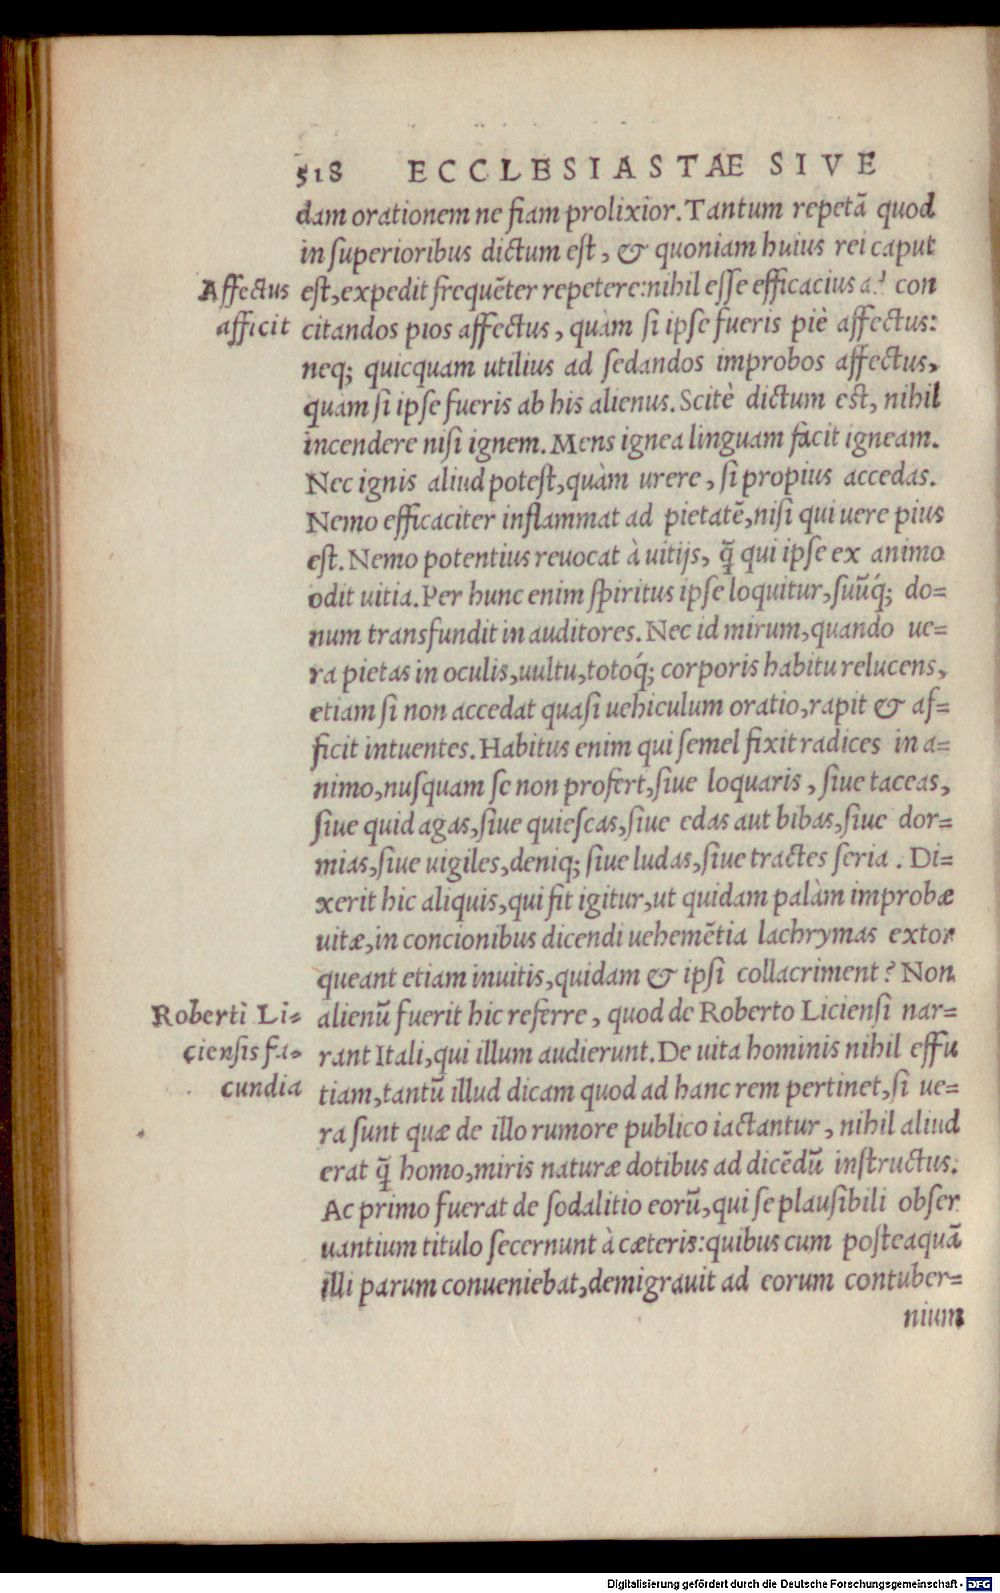 518 ECCLESIASTAE SIVE
dam orationem ne fiam prolixior. Tantum repetā quod
in superioribus dictum est, & quoniam huius rei caput
Affectus
est, expedit frequēter repetere: nihil esse efficacius ad con
afficit
citandos pios affectus, quàm si ipse fueris piè affectus:
neq; quicquam utilius ad sedandos improbos affectus,
quàm si ipse fueris ab his alienus. Scitè dictum est, nihil
incendere nisi ignem. Mens ignea linguam facit igneam.
Nec ignis aliud potest, quàm urere, si propius accedas.
Nemo efficaciter inflammat ad pietatē, nisi qui uere pius
est. Nemo potentius reuocat à uitijs, q̄ qui ipse ex animo
odit uitia. Per hunc enim spiritus ipse loquitur, suūq́; do=
num transfundit in auditores. Nec id mirum, quando ue=
ra pietas in oculis, uultu, totoq́; corporis habitu relucens,
etiam si non accedat quasi uehiculum oratio, rapit & af=
ficit intuentes. Habitus enim qui semel fixit radices in a=
nimo, nusquam se non profert, siue loquaris, siue taceas,
siue quid agas, siue quiescas, siue edas aut bibas, siue dor=
mias, siue uigiles, deniq; siue ludas, siue tractes seria. Di=
xerit hic aliquis, qui fit igitur, ut quidam palàm improbæ
uitæ, in concionibus dicendi uehemētia lachrymas extor
queant etiam inuitis, quidam & ipsi collacriment? Non
Roberti Li=
alienū fuerit hic referre, quod de Roberto Liciensi nar=
ciensis fa=
rant Itali, qui illum audierunt. De uita hominis nihil effu
cundia
tiam, tantū illud dicam quod ad hanc rem pertinet, si ue=
ra sunt quæ de illo rumore publico iactantur, nihil aliud
erat q̄ homo, miris naturæ dotibus ad dicēdū instructus.
Ac primo fuerat de sodalitio eorū, qui se plausibili obser
uantium titulo secernunt à cæteris: quibus cum posteaquā
illi parum conueniebat, demigrauit ad eorum contuber=
nium
Digitalisierung gefördert durch die Deutsche Forschungsgemeinschaft - DFG